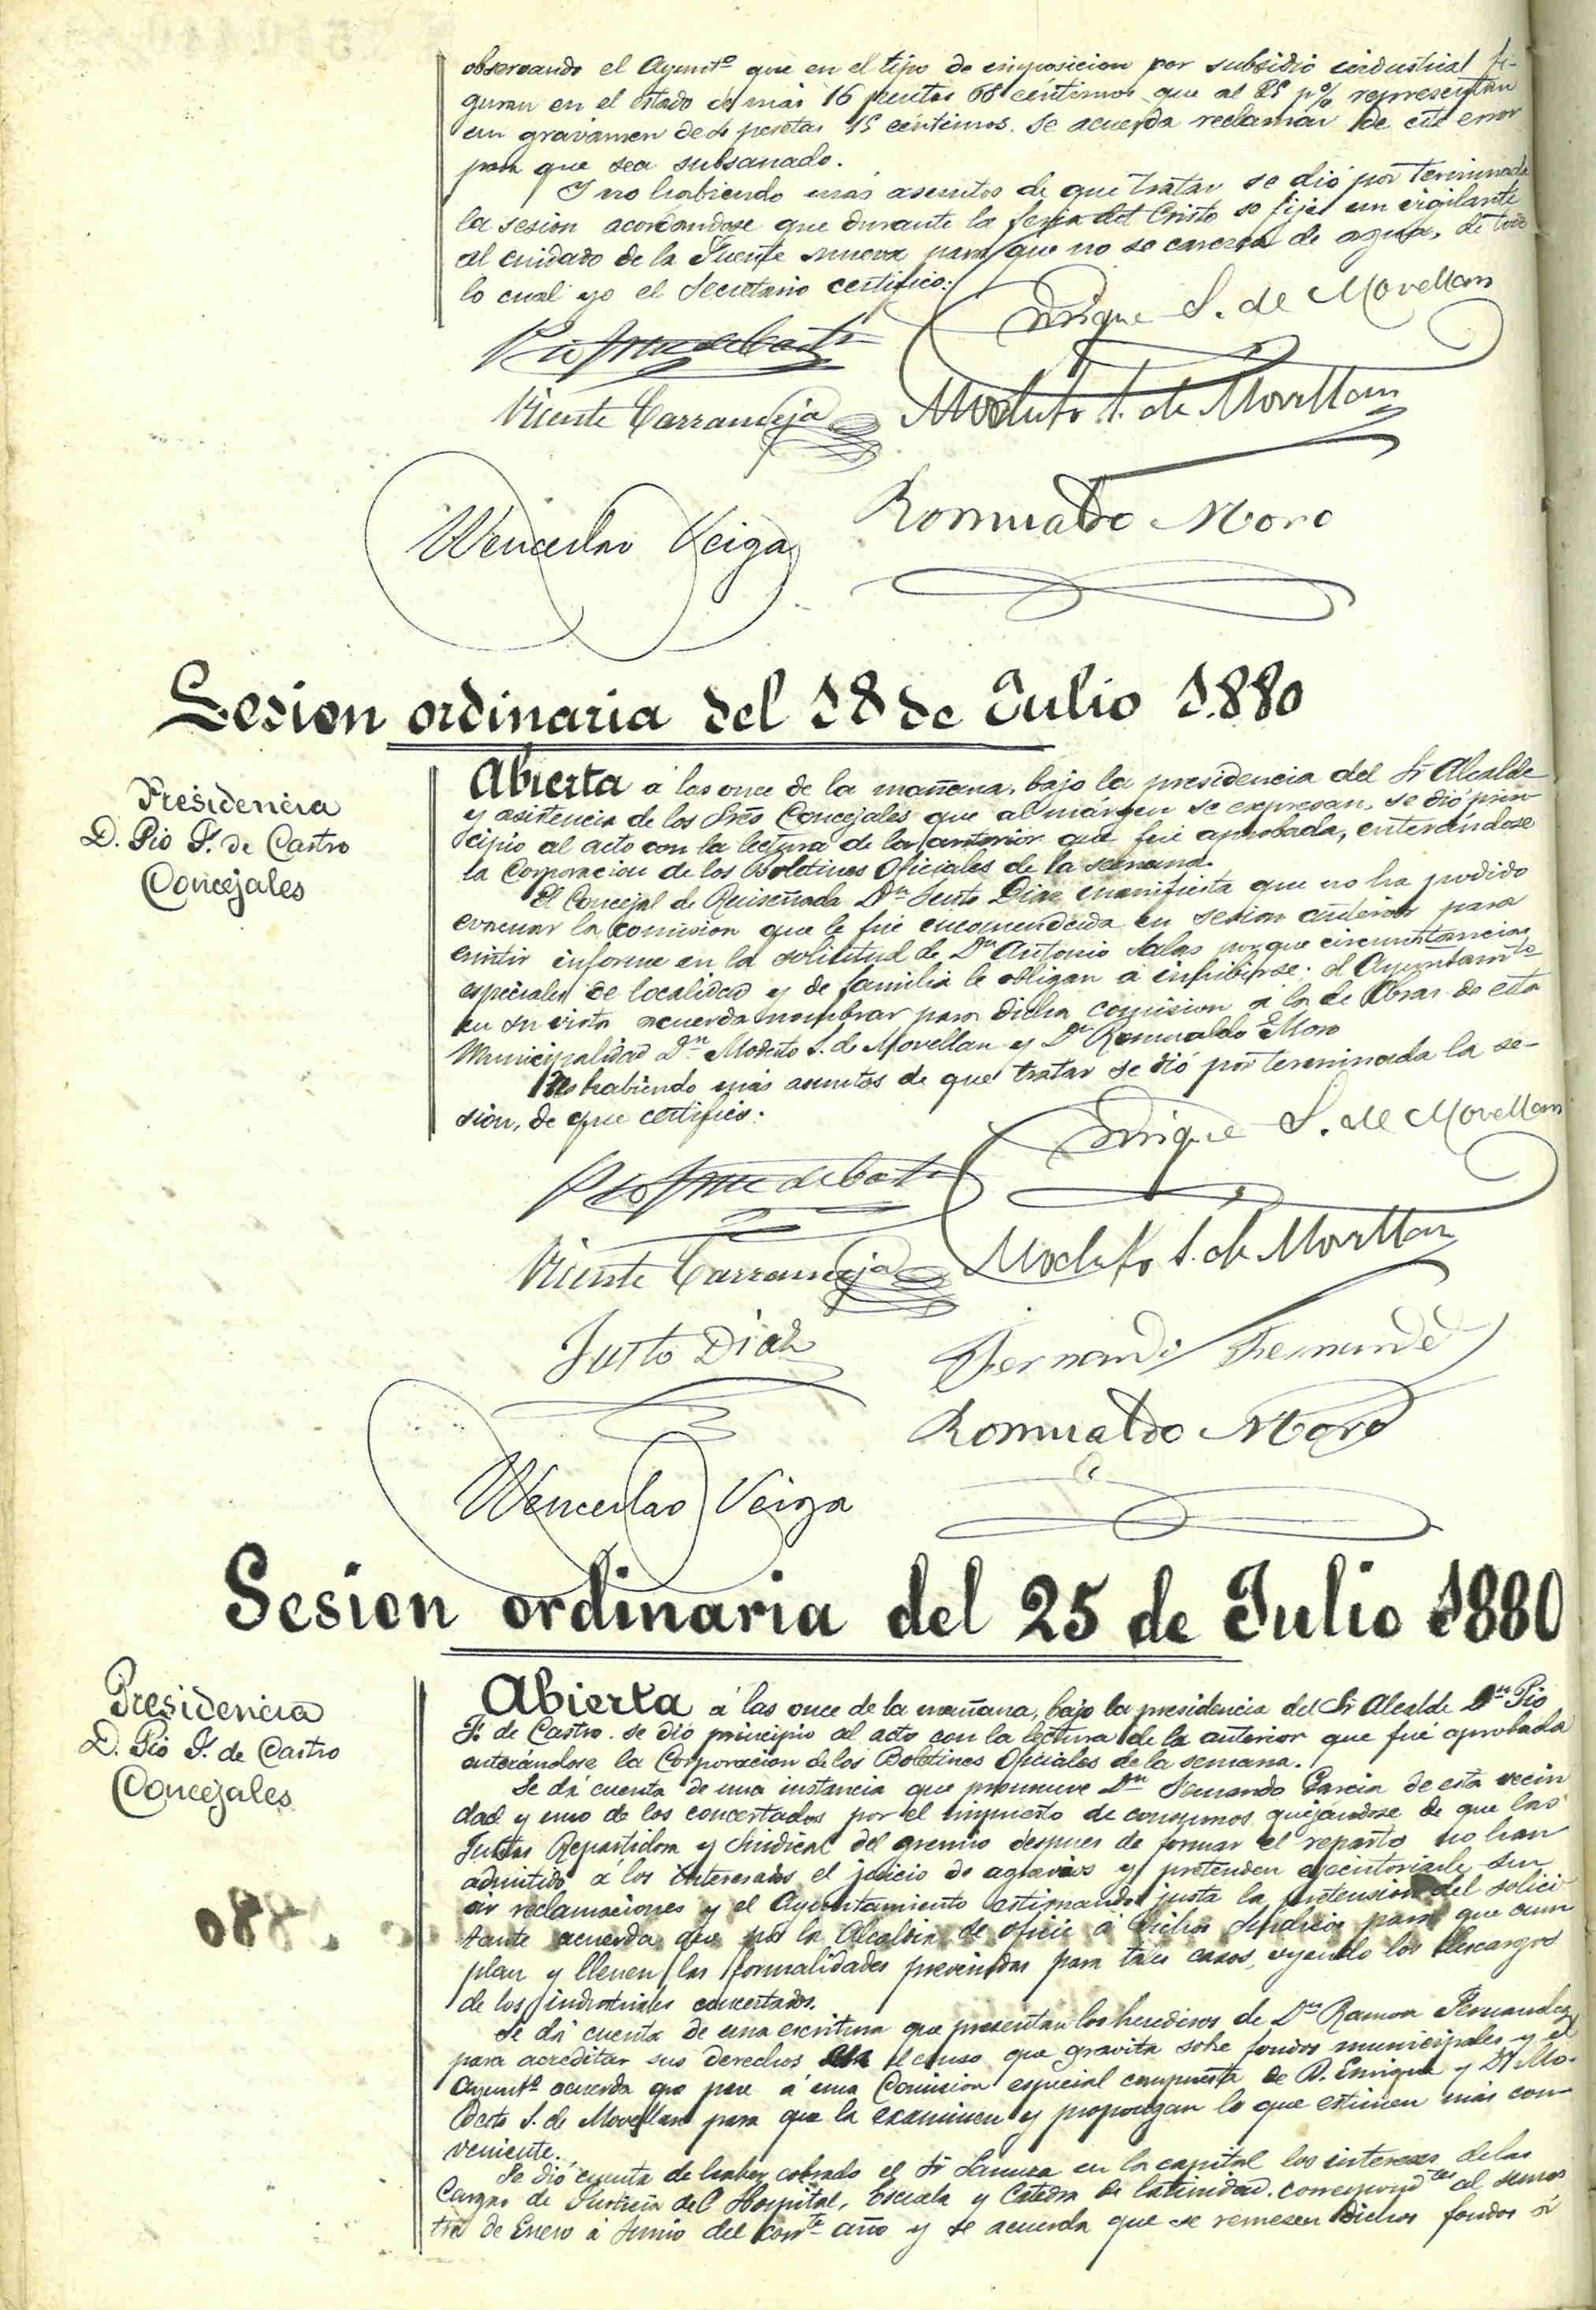 observando el Ayuntº que en el tipo de imposicion por subsidio industrial fi-
guran en el estado de más 16 pesetas 68 céntimos que al 25 p% representan
un gravámen de pesetas 15 céntimos. Se acuerda reclamar de este error
para que sea subsanado.
Y no habiendo más asuntos de que tratar se dió por terminada
la sesion acordandose que durante la feria del Cristo se fije un vigilante
al cuidado de la Fuente nueva para que no se carezca de agua, de todo
lo cual yo el Secretario certifico.
Enrique S. de Movellan
Pio F. de Castro
Vicente Carrandeja
Modesto S. de Movellan
Romualdo Moro
Wenceslao Veiga
Sesion ordinaria del 18 de Julio 1.880
Presidencia
D. Pio F. de Castro
Concejales
Abierta á las once de la mañana, bajo la presidencia del Sr Alcalde
y asistencia de los Sres Concejales que al márgen se expresan, se dió prin-
cipio al acto con la lectura de la anterior que fué aprobada, enterándose
la Corporacion de los Boletines Oficiales de la semana.
El Concejal de Ruiseñada Dn Justo Diaz manifiesta que no ha podido
evacuar la comision que le fué encomendada en sesion anterior para
emitir informe en la solicitud de Dn Antonio Salas porque circunstancias
especiales de localidad y de familia le obligan a inhibirse. El Ayuntamto
en su vista acuerda nombrar para dicha comision á la de Obras de esta
Municipalidad Dn Modesto S. de Movellan y Dn Romualdo Moro
No habiendo más asuntos de que tratar se dió por terminada la se-
sion, de que certifico.
Enrique S. de Movellan
Pio F. de Castro
Vicente Carrandeja
Modesto S. de Movellan
Justo Diaz
Fernando Fernandez
Romualdo Moro
Wenceslao Veiga
Sesion ordinaria del 25 de Julio 1880
Presidencia
D. Pio F. de Castro
Concejales
Abierta á las once de la mañana, bajo la presidencia del Sr Alcalde Dn Pio
F. de Castro. se dió principio al acto con la lectura de la anterior que fué aprobada
enterándose la Corporacion de los Boletines Oficiales de la semana.
Se dá cuenta de una instancia que promueve Dn Fernando Garcia de esta vecin
dad y uno de los concertados por el impuesto de consumos quejándose de que las
Juntas Repartidora y Sindical del gremio despues de formar el reparto no han
admitido á los interesados el juicio de agravios y pretenden ejecutoriarle sin
oir reclamaciones y el Ayuntamiento estimando justa la pretension del solici
tante acuerda que por la Alcaldia se oficie á dichos Sindicos para que cum
plan y llenen las formalidades prevenidas para tales casos, oyendo los descargos
de los industriales concertados.
Se dá cuenta de una escritura que presentan los herederos de Dn Ramon Fernandez
para acreditar sus derechos al censo que gravita sobre fondos municipales y el
Ayuntº acuerda que pase á una Comision especial compuesta de D. Enrique y Dn Mo-
desto S. de Movellan para que la examinen y propongan lo que estimen más con-
veniente.
Se dió cuenta de haber cobrado el Sr en la capital los intereses de las
Cargas de Justicia del Hospital, Escuela y Catedra de latinidad. correspondtes al semes
tre de Enero á Junio del corrte año y se acuerda que se remesen dichos fondos á